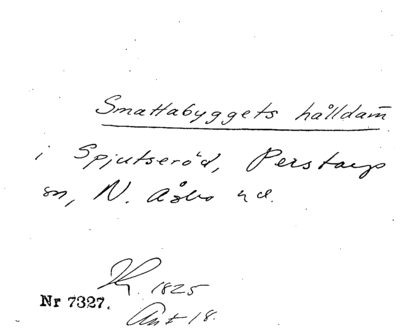 Smattabyggets hålldam
i Spjutseröd, Perstorps
sn, N. Åsbo hd.
K. 1825
Nr 7327.
Ant 18.